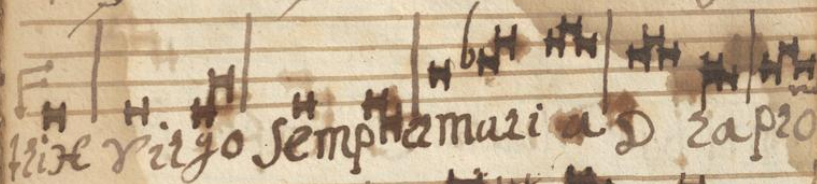 trix virgo semper maria D ra pro